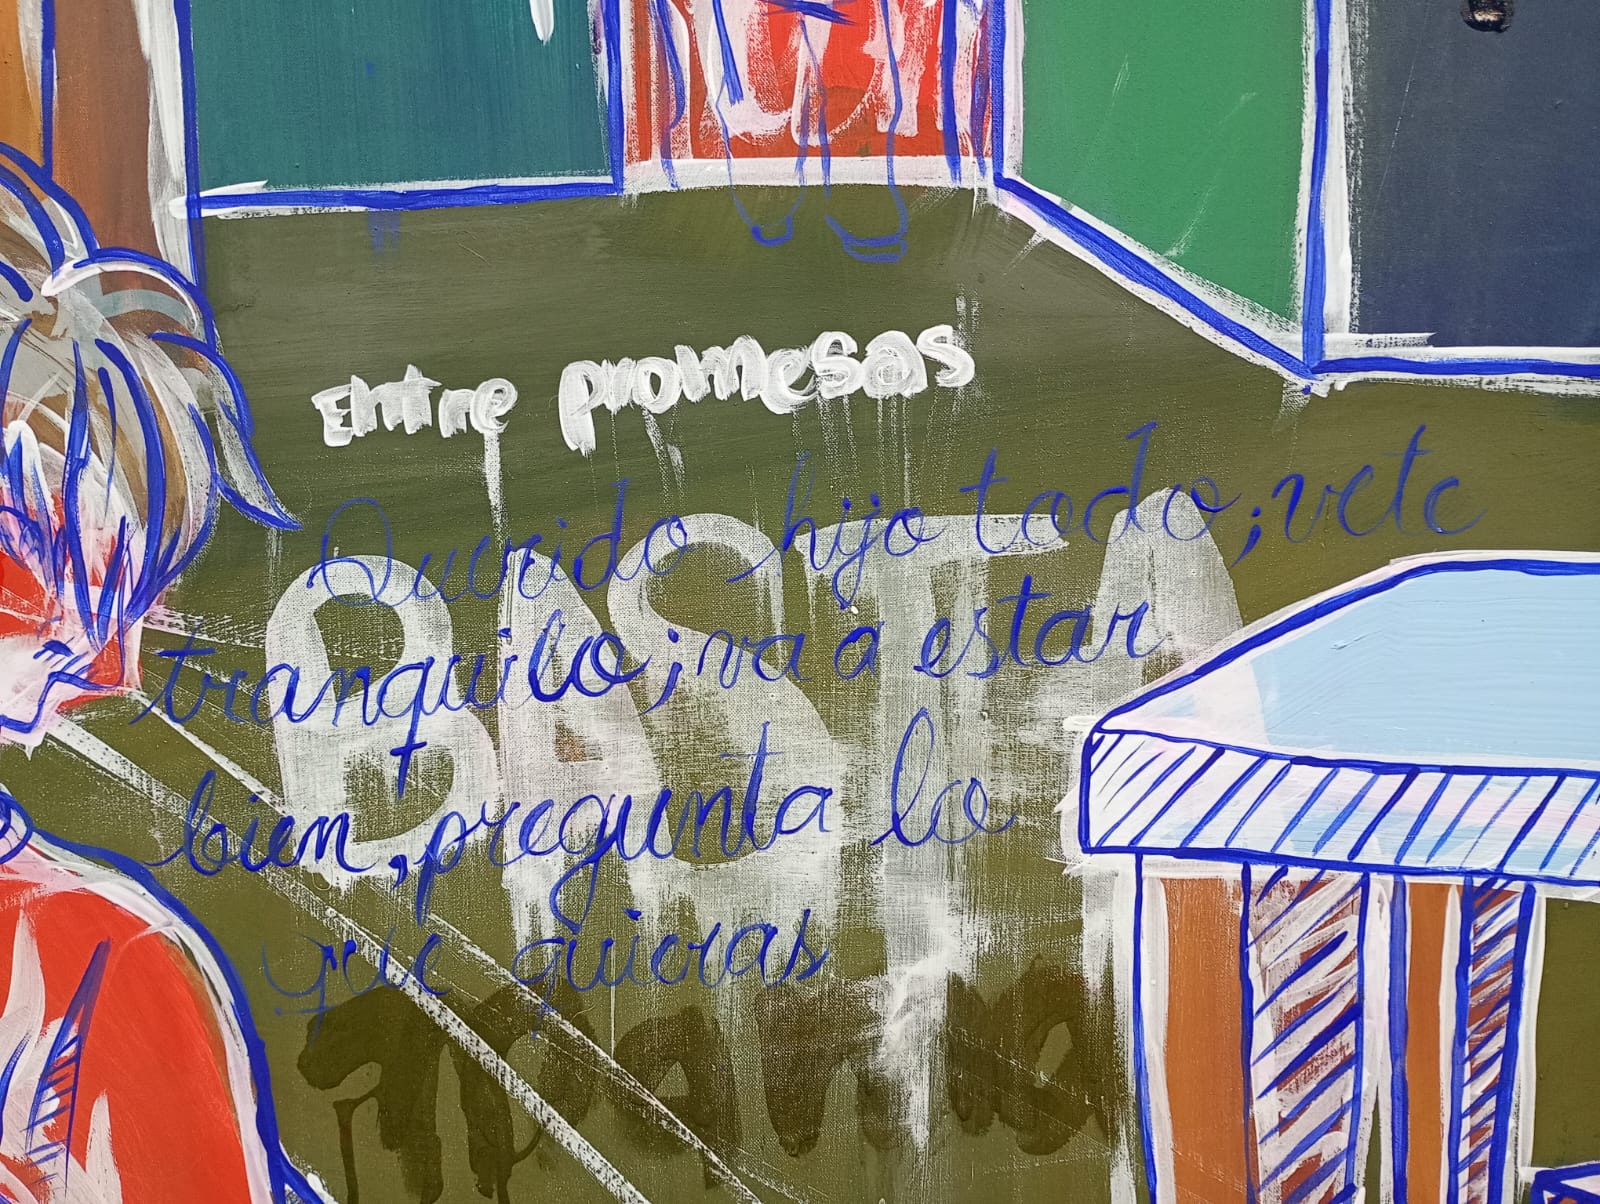 Entre promesas
BASTA
Querido hijo todo; vete
tranquilo; va a estar
bien, pregunta lo
que quieras